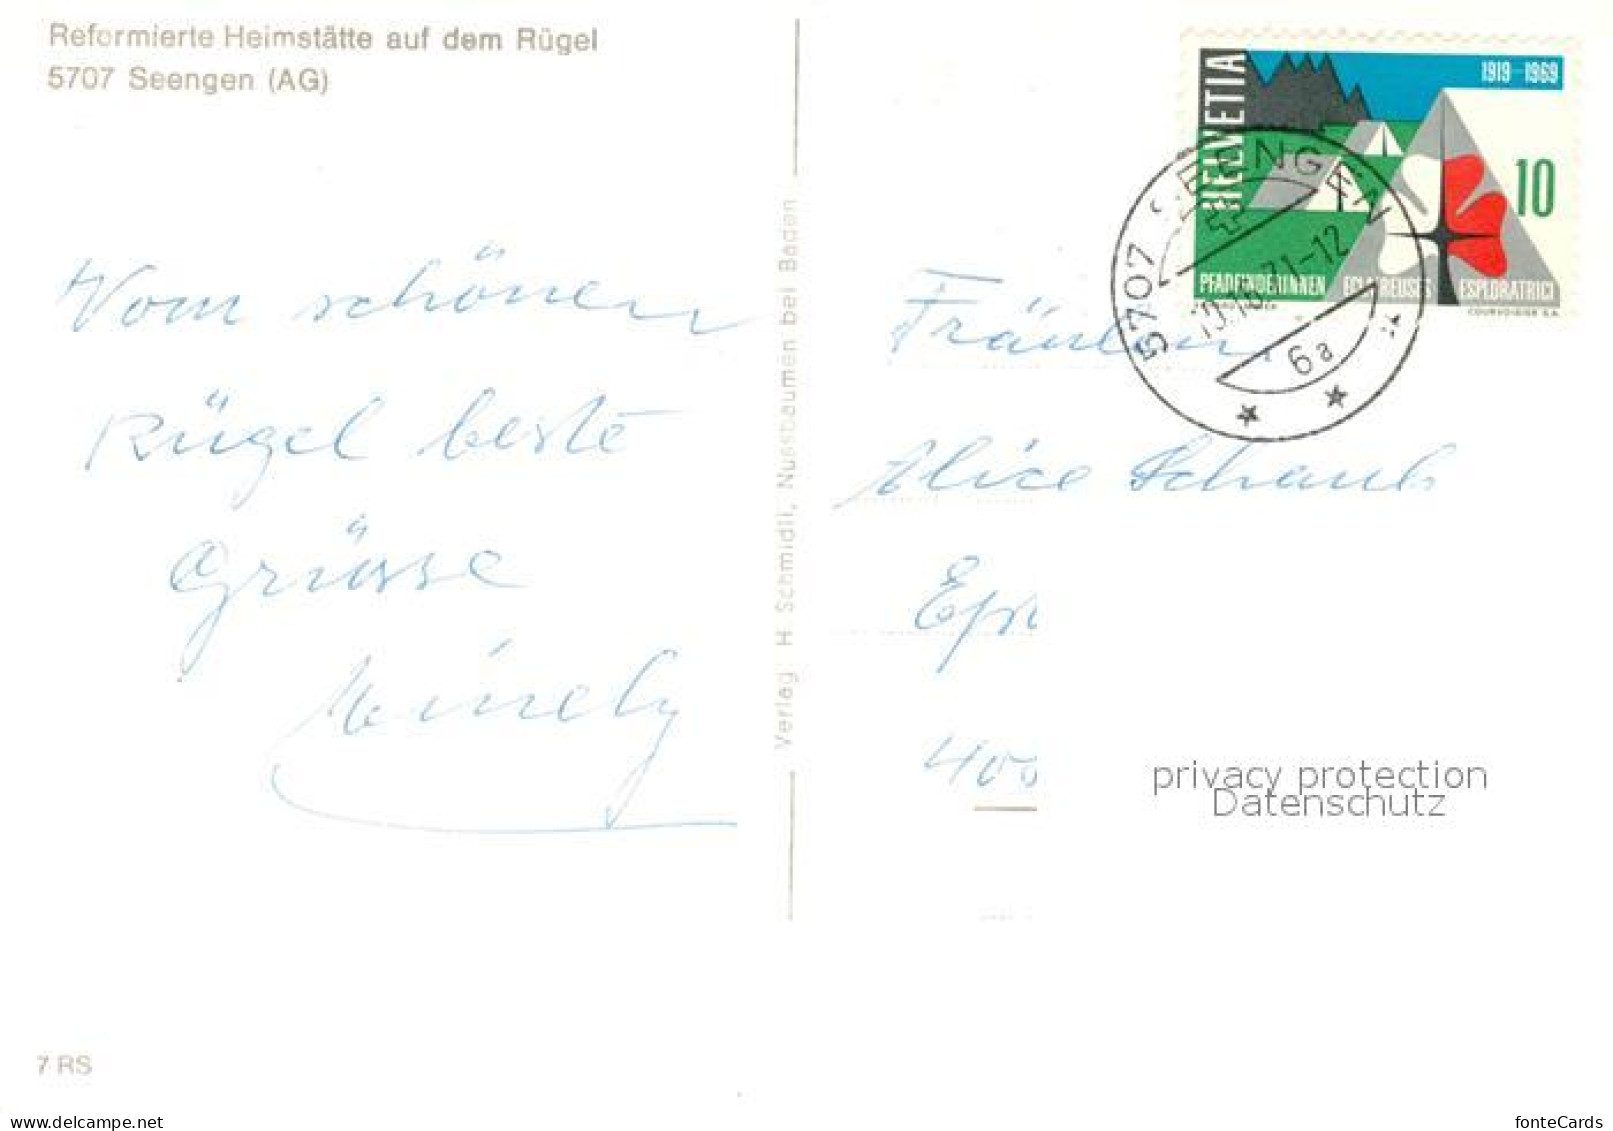 Reformierte Heimstätte auf dem Rügel
5707 Seengen (AG)
Vom schönen
Rügel beste
Grüsse
Verlag H. Schmidli, Nussbaumen bei Baden
HELVETIA
1919-1969
10
PFADFINDERINNEN ECLAIREUSES ESPLORATRICI
COURVOISIER S.A.
5707 SEENGEN
71-12
6a
Fräulein
Alice Schaub
400
privacy protection
Datenschutz
7 RS
www.delcampe.net
fonteCards